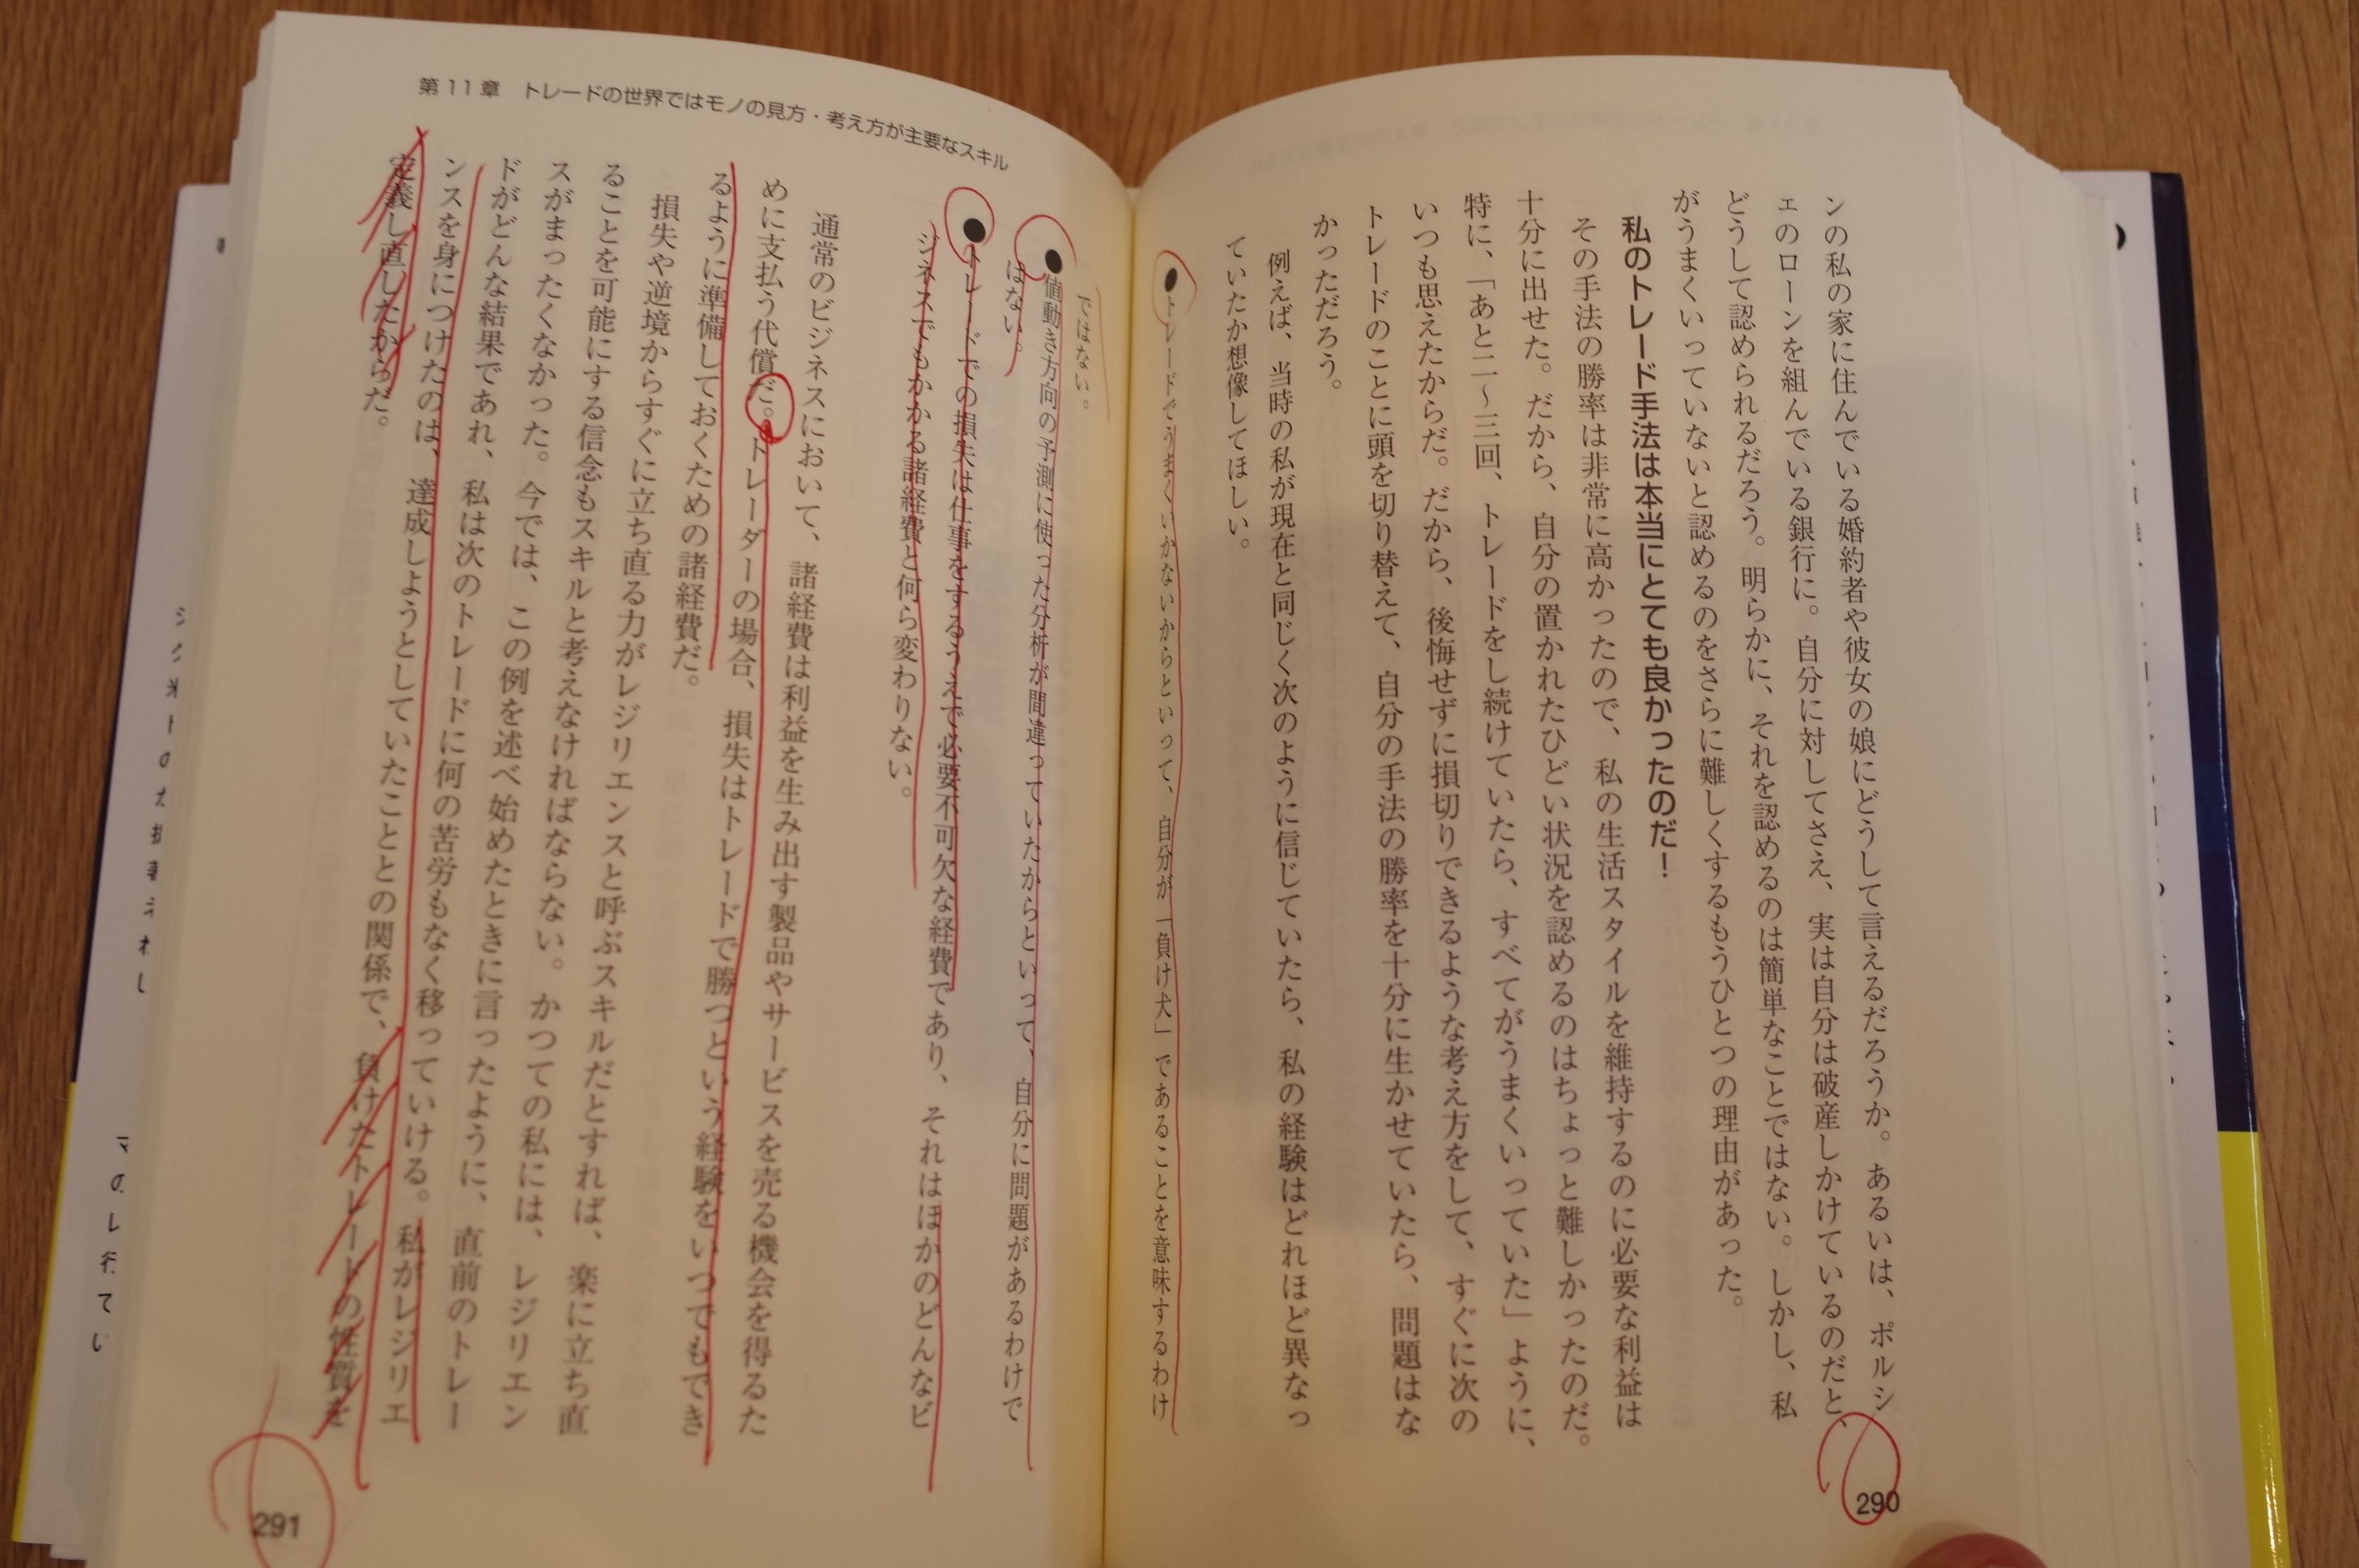 ンの私の家に住んでいる婚約者や彼女の娘にどうして言えるだろうか。あるいは、ポルシ
ェのローンを組んでいる銀行に。自分に対してさえ、実は自分は破産しかけているのだと、
どうして認められるだろう。明らかに、それを認めるのは簡単なことではない。しかし、私
がうまくいっていないと認めるのをさらに難しくするもうひとつの理由があった。
私のトレード手法は本当にとても良かったのだ！
その手法の勝率は非常に高かったので、私の生活スタイルを維持するのに必要な利益は
十分に出せた。だから、自分の置かれたひどい状況を認めるのはちょっと難しかったのだ。
特に、「あと二〜三回、トレードをし続けていたら、すべてがうまくいっていた」ように、
いつも思えたからだ。だから、後悔せずに損切りできるような考え方をして、すぐに次の
トレードのことに頭を切り替えて、自分の手法の勝率を十分に生かせていたら、問題はな
かっただろう。
例えば、当時の私が現在と同じく次のように信じていたら、私の経験はどれほど異なっ
ていたか想像してほしい。
●トレードでうまくいかないからといって、自分が「負け犬」であることを意味するわけ
290
第11章 トレードの世界ではモノの見方・考え方が主要なスキル
ではない。
●値動き方向の予測に使った分析が間違っていたからといって、自分に問題があるわけで
はない。
●トレードでの損失は仕事をするうえで必要不可欠な経費であり、それはほかのどんなビ
ジネスでもかかる諸経費と何ら変わりない。
通常のビジネスにおいて、諸経費は利益を生み出す製品やサービスを売る機会を得るた
めに支払う代償だ。トレーダーの場合、損失はトレードで勝つという経験をいつでもでき
るように準備しておくための諸経費だ。
損失や逆境からすぐに立ち直る力がレジリエンスと呼ぶスキルだとすれば、楽に立ち直
ることを可能にする信念もスキルと考えなければならない。かつての私には、レジリエン
スがまったくなかった。今では、この例を述べ始めたときに言ったように、直前のトレー
ドがどんな結果であれ、私は次のトレードに何の苦労もなく移っていける。私がレジリエ
ンスを身につけたのは、達成しようとしていたこととの関係で、負けたトレードの性質を
定義し直したからだ。
291